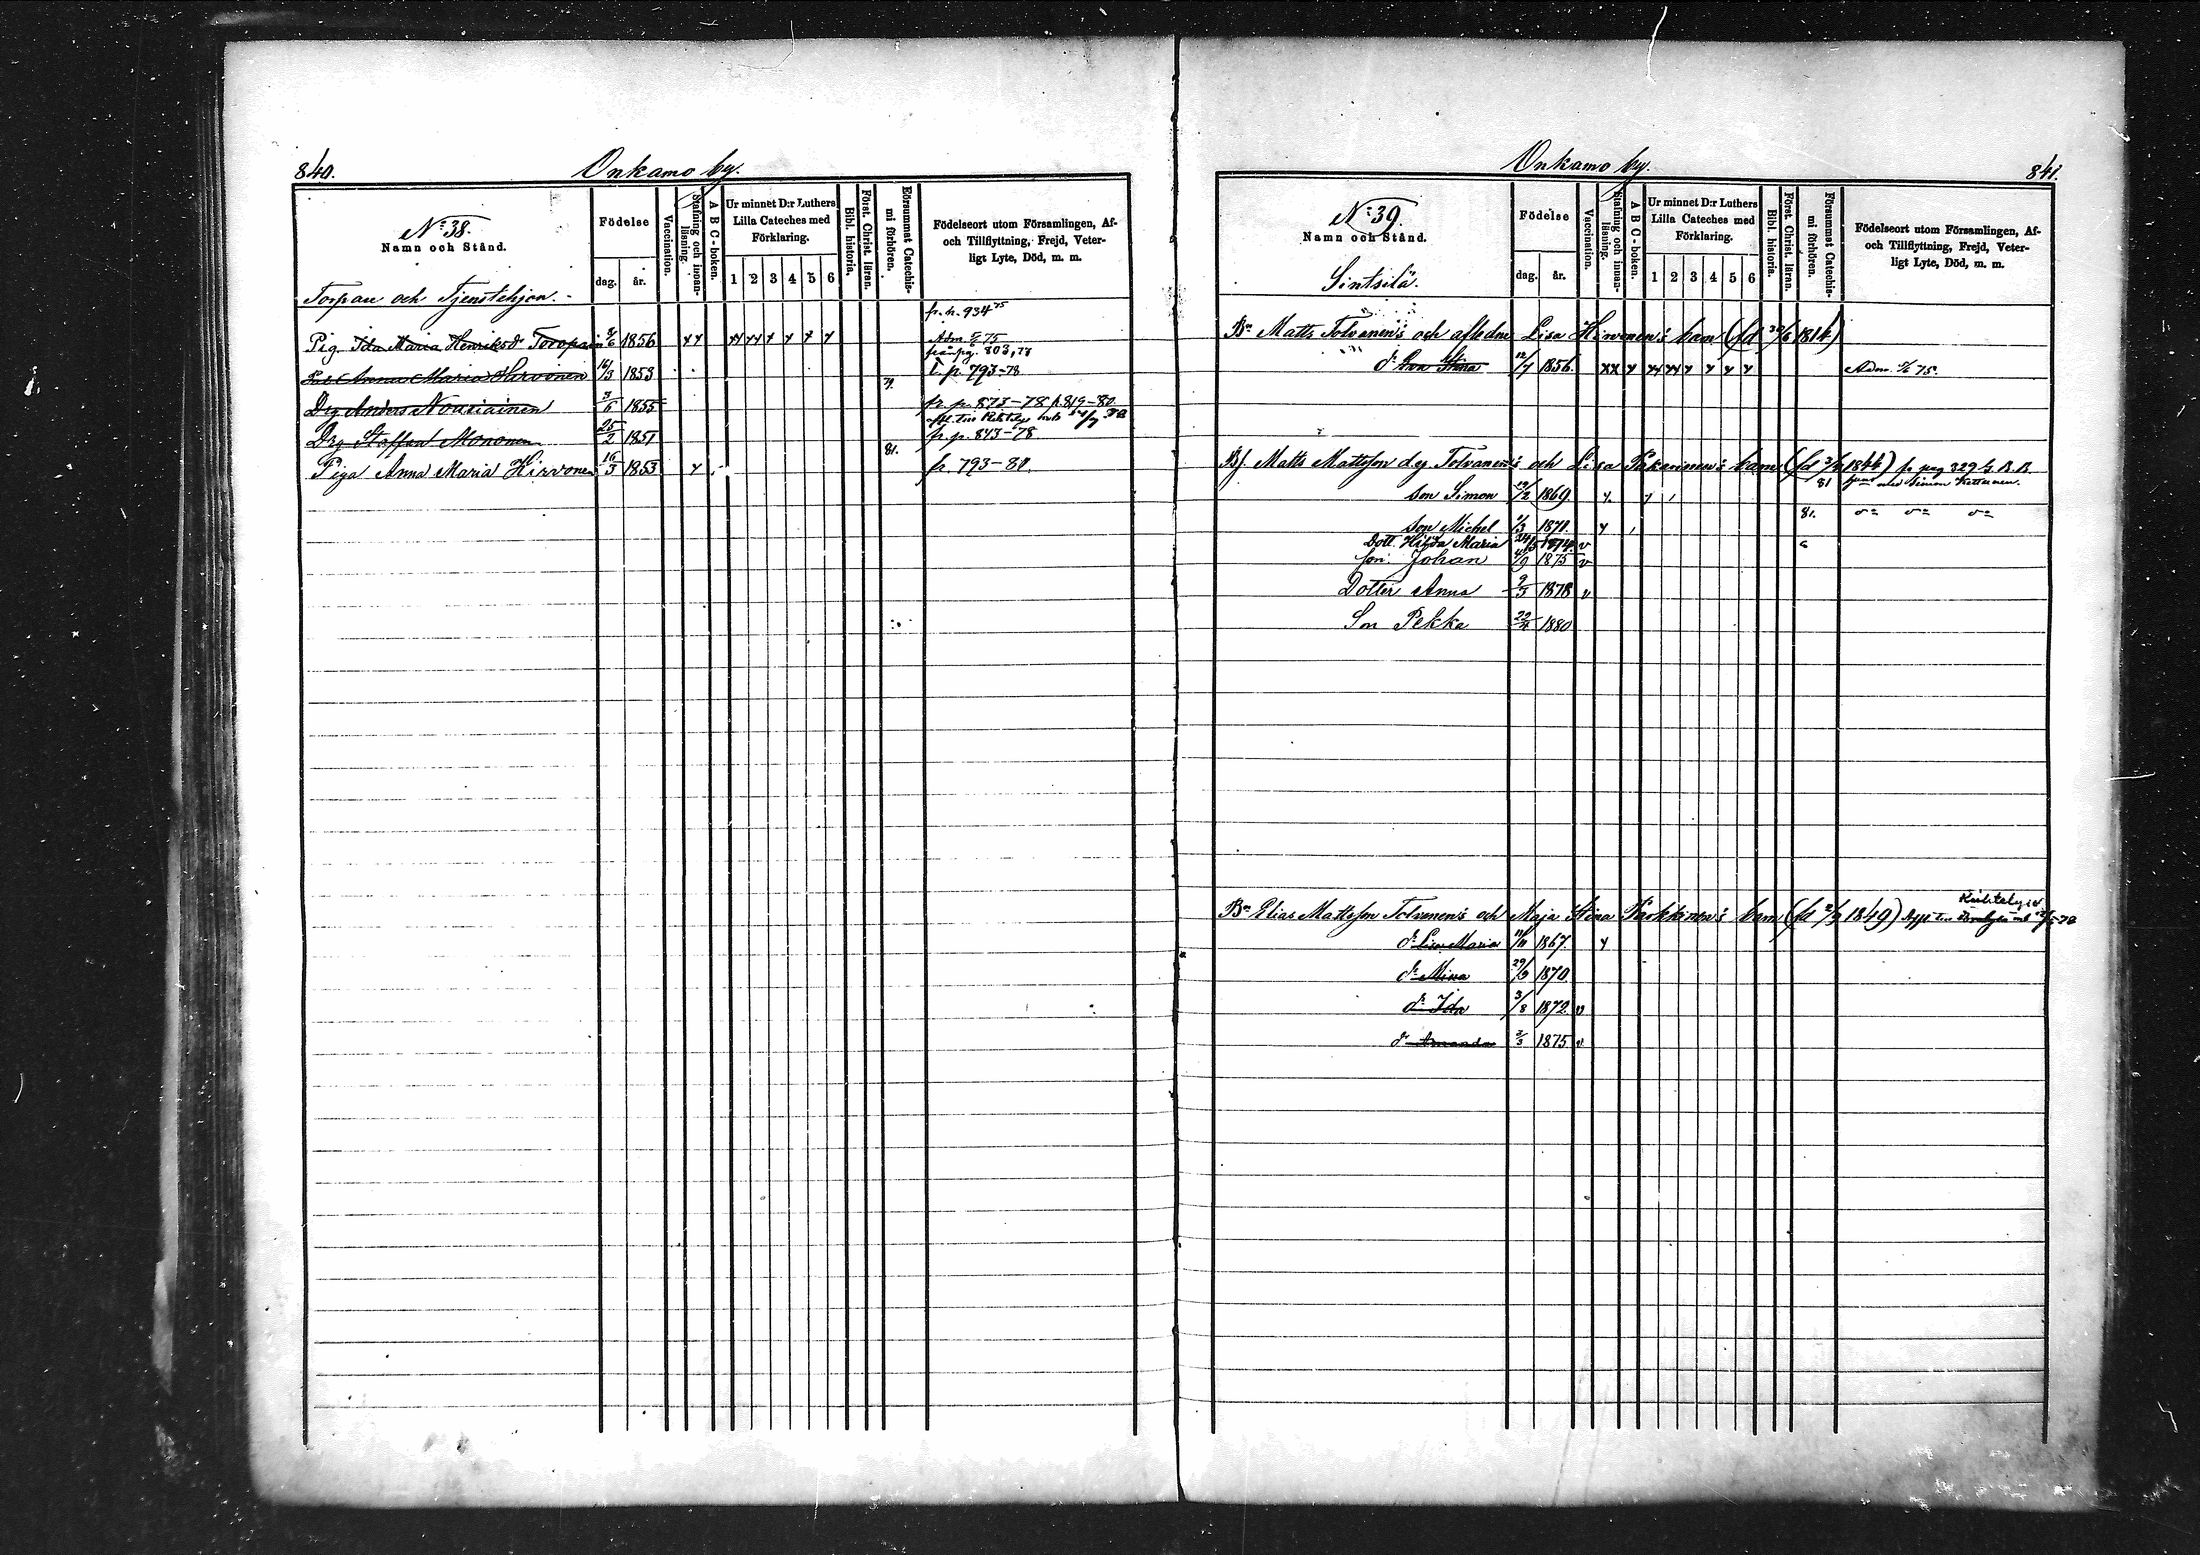 840.
Onkamo by.
N:o 38.
Namn och Stånd.
Födelse
dag.
år.
Vaccination.
Stafning och innanläsning.
A B C-boken.
Ur minnet D:r Luthers
Lilla Cateches med
Förklaring.
1 2 3 4 5 6
Bibl. historia.
Först. Christ. läran.
Försummat Catechismi förhören.
Födelseort utom Församlingen, Af-
och Tillflyttning, Frejd, Veter-
ligt Lyte, Död, m. m.
Torpare och Tjenstehjon.
fr. p. 934 75
Pig. Ida Maria Henriksdr Toropain 8/6 1856 Adm 75
från pg. 803, 78
Anna Maria Hirvonen 16/3 1853 t. p. 793-78
79.
Drg Anders Nousiainen 3/6 1855 fr. p. 873-78 p. 819-80.
Drg Staffan Mononen 25/2 1851 fr. p. 843-78
81.
Piga Anna Maria Hirvonen 16/3 1853 fr. 793-80.
Onkamo by.
841.
N:o 39.
Namn och Stånd.
Sintsilä.
Födelse
dag.
år.
Vaccination.
Stafning och innanläsning.
A B C-boken.
Ur minnet D:r Luthers
Lilla Cateches med
Förklaring.
1 2 3 4 5 6
Bibl. historia.
Först. Christ. läran.
Försummat Catechismi förhören.
Födelseort utom Församlingen, Af-
och Tillflyttning, Frejd, Veter-
ligt Lyte, Död, m. m.
Bn Matts Tolvanen's och aflidne Lisa Hirvonen's barn (fd 1814)
dr Eva Stina 12/7 1856. Adm. 75.
Bf. Matts Mattsson d.y. Tolvanen's och Lisa Pakarinen's barn (fd 1844) fr pag 329 K. B.
son Simon 19/2 1869. 81 med Simon Kettunen.
son Michel 1/3 1871. 81.
Dott. Hilda Maria 24/5 1874. v
son Johan 4/9 1875 v
Dotter Anna 9/3 1878 v
Son Pekka 29/4 1880
Kiihtelys
Bn Elias Mattsson Tolvanen's och Maja Stina Parkkinen's barn (fd 1849)
dr Lisa Maria 11/11 1867.
dr Mina 29/9 1870.
dr Ida 3/8 1872. v
dr Amanda 2/3 1875 v